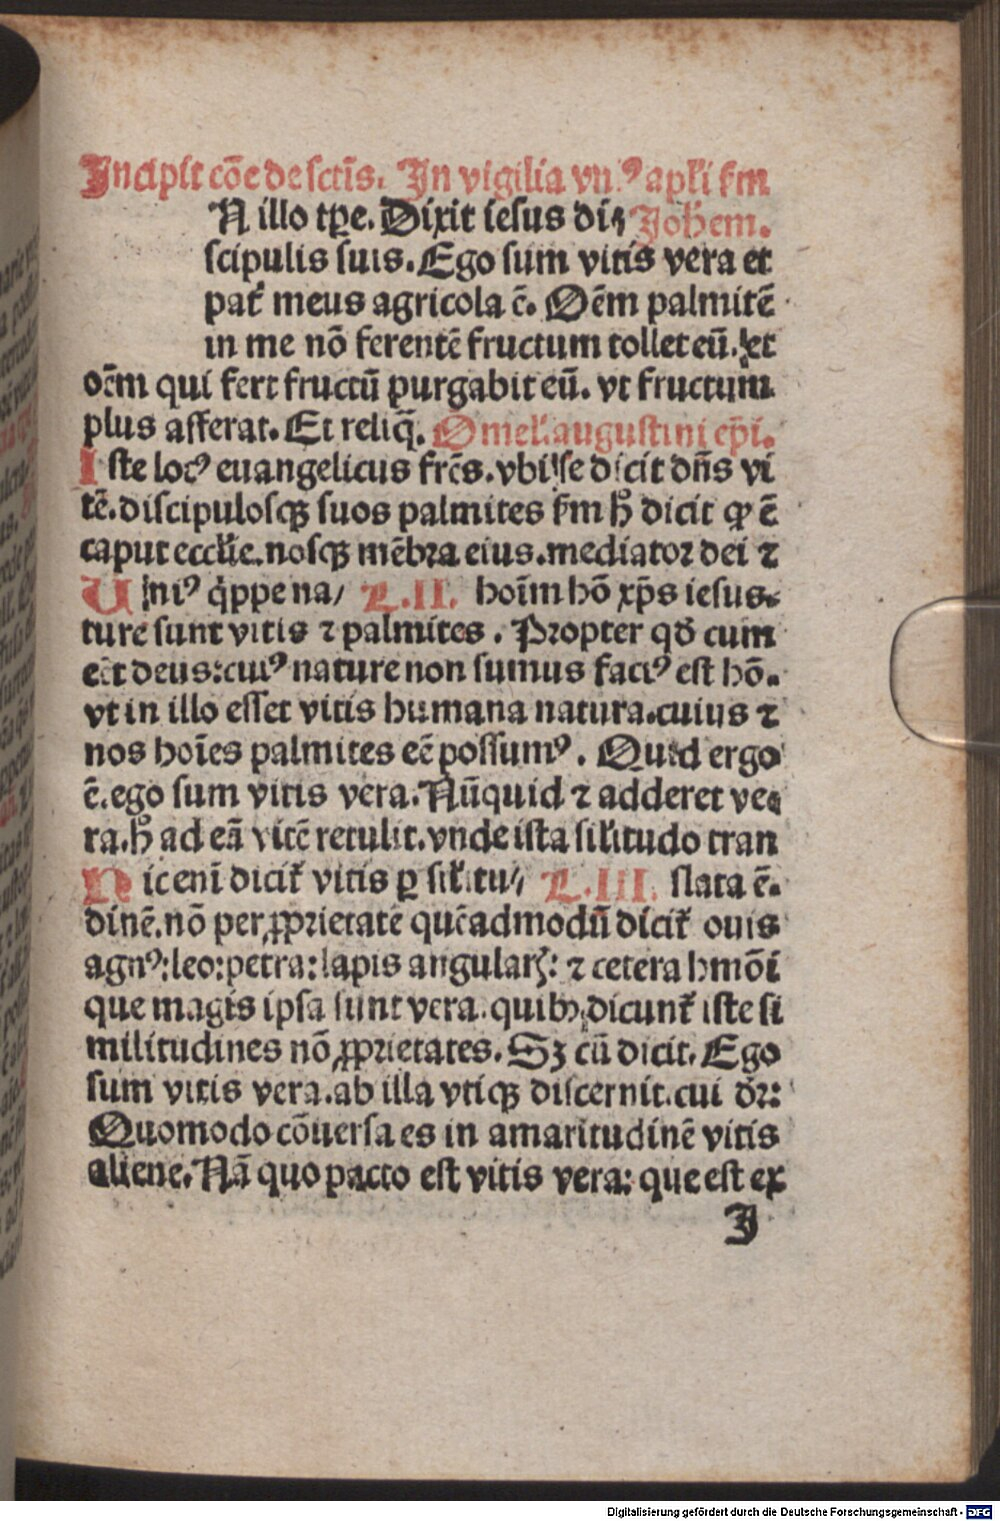 Incipit cōe de sctīs. In vigilia vniꝰ apl'i ẜm
N illo tꝑe. Dixit iesus di⸗ Joh'em.
scipulis suis. Ego sum vitis vera et
pat̄ meus agricola ē. Oēm palmitē
in me nō ferentē fructum tollet eū. et
oēm qui fert fructū purgabit eū. vt fructum
plus afferat. Et reliq̄. Omel'. augustini ep̄i.
Iste locꝰ euangelicus fr̄es. vbi se dicit dn̄s vi
tē. discipulosqꝫ suos palmites ẜm ħ dicit ꝙ ē
caput eccl'ie. nosqꝫ mēbra eius. mediator dei ⁊
Uniꝰ q̍ppe na/ L.II. hoīm hō xp̄s iesus.
ture sunt vitis ⁊ palmites. Propter qđ cum
eēt deus: cuiꝰ nature non sumus factꝰ est hō.
vt in illo esset vitis humana natura. cuius ⁊
nos hoīes palmites eē possumꝰ. Quid ergo
ē. ego sum vitis vera. Nūquid ⁊ adderet ve⸗
ra. ħ ad eā vitē retulit. vnde ista sil'itudo tran
Nic enī dicit̄ vitis ꝑ sil'itu/ L.III. slata ē.
dinē. nō per ꝓprietatē quēadmodū dicit̄ ouis
agnꝰ: leo: petra: lapis angularꝭ: ⁊ cetera hmōi
que magis ipsa sunt vera. quibꝫ dicunt̄ iste si
militudines nō ꝓprietates. Sꝫ cū dicit. Ego
sum vitis vera. ab illa vtiqꝫ discernit. cui dr̄:
Quomodo cōuersa es in amaritudinē vitis
aliene. Nā quo pacto est vitis vera: que est ex
J
Digitalisierung gefördert durch die Deutsche Forschungsgemeinschaft - DFG